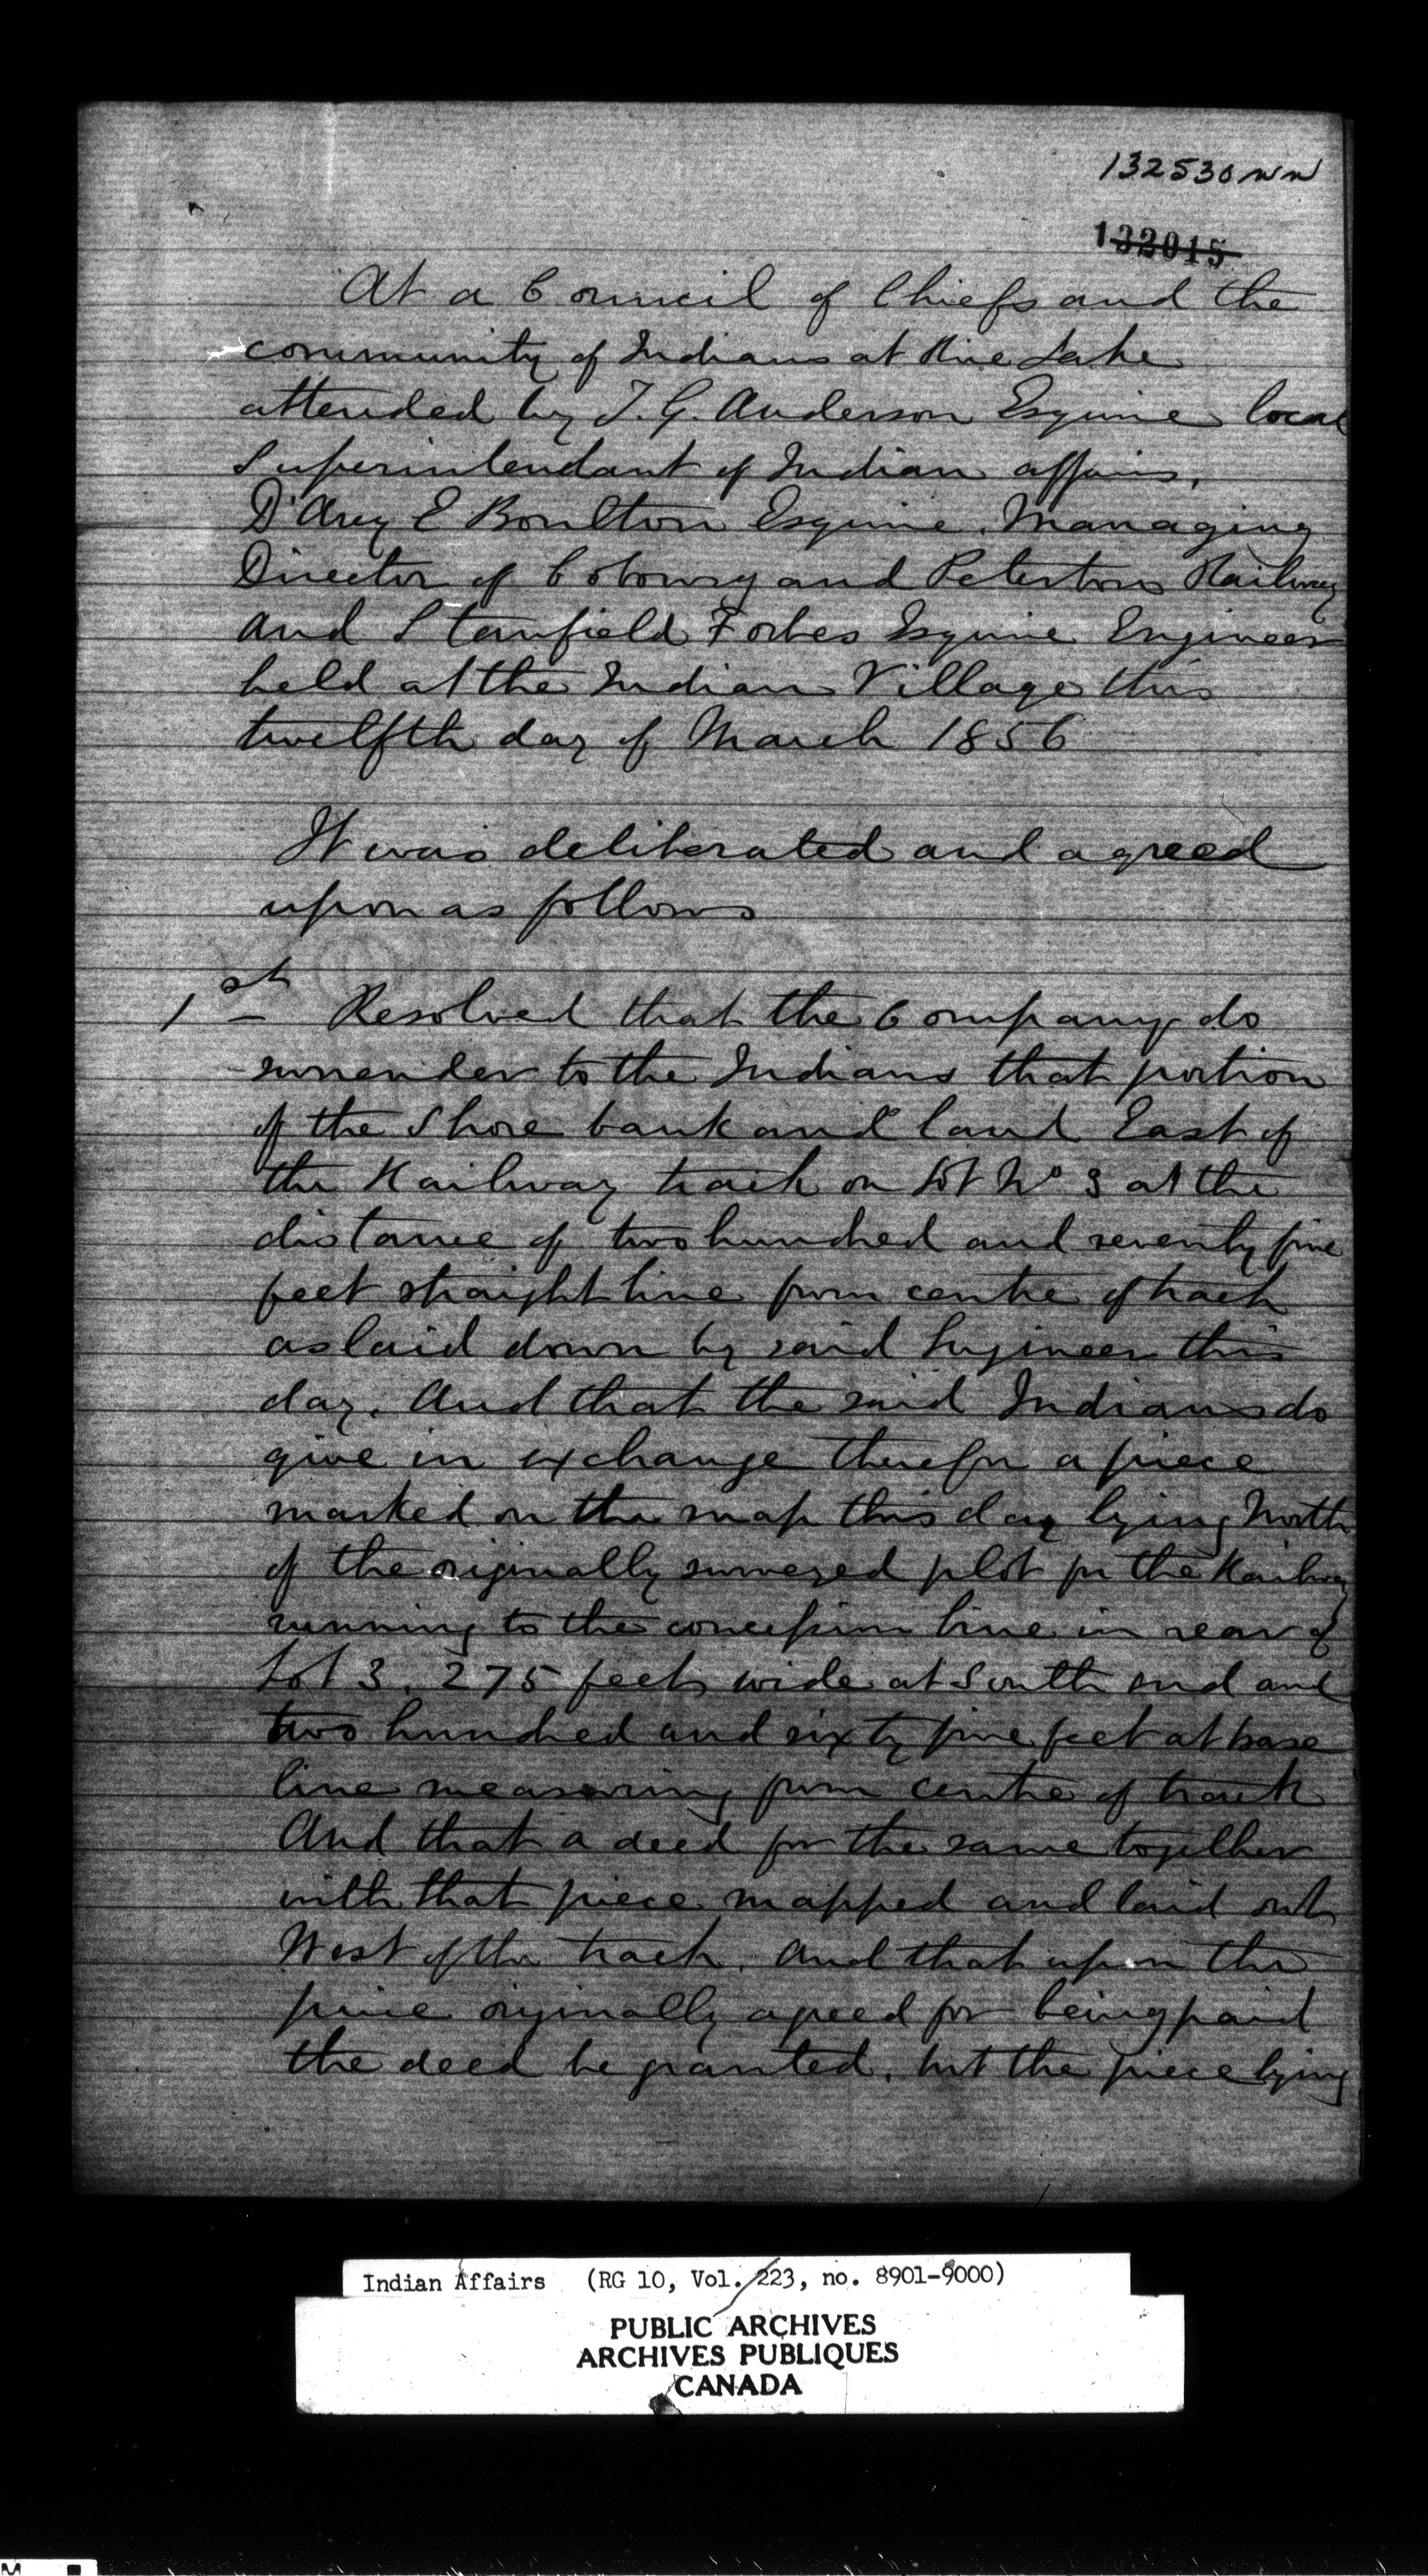 132530 NN
132015
At a Council of Chiefs and the
community of Indians at Rice Lake
attended by T. G. Anderson Esquire local
Superintendant of Indian affairs,
D'Arcy E Boulton Esquire. Managing
Director of Cobourg and Peterboro Railway
and Stanfield Forbes Esquire Engineer
held at the Indian Village this
twelfth day of March 1856
It was deliberated and agreed
upon as follows
1st Resolved that the Company do
surrender to the Indians that portion
of the Shore bank and land East of
the Railway track on Lot No 3 at the
distance of two hundred and seventy five
feet straight line from centre of track
as laid down by said Engineer this
day. And that the said Indians do
give in exchange therefor a piece
marked on the map this day lying North
of the originally surveyed plot for the Railway
running to the concession line in rear of
Lot 3. 275 feet wide at South end and
two hundred and sixty five feet at base
line measuring from centre of track
And that a deed for the same together
with that piece mapped and laid out
West of the track. And that upon the
price originally agreed for being paid
the deed be granted. but the piece lying
Indian Affairs (RG 10, Vol. 223, no. 8901-9000)
PUBLIC ARCHIVES
ARCHIVES PUBLIQUES
CANADA